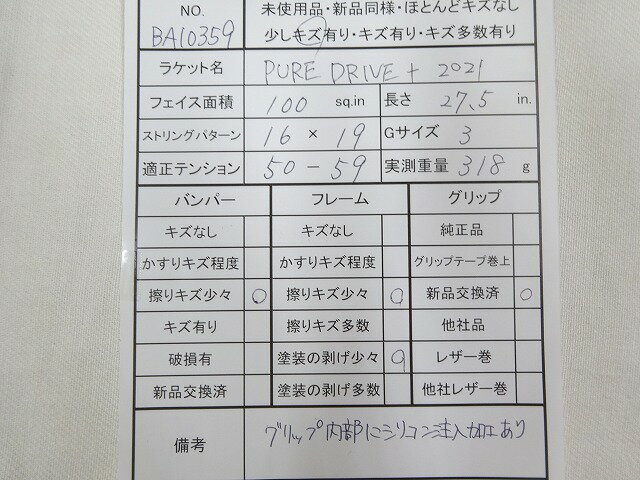 NO. 未使用品・新品同様・ほとんどキズなし
BA10359 少しキズ有り・キズ有り・キズ多数有り
ラケット名 PURE DRIVE + 2021
フェイス面積 100 sq.in 長さ 27.5 in.
ストリングパターン 16 × 19 Gサイズ 3
適正テンション 50 - 59 実測重量 318 g
バンパー フレーム グリップ
キズなし キズなし 純正品
かすりキズ程度 かすりキズ程度 グリップテープ巻上
擦りキズ少々 ○ 擦りキズ少々 ○ 新品交換済 ○
キズ有り 擦りキズ多数 他社品
破損有 塗装の剥げ少々 ○ レザー巻
新品交換済 塗装の剥げ多数 他社レザー巻
備考 グリップ内部にシリコン注入加工あり